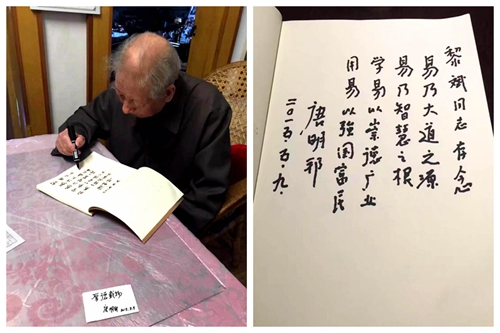 厚德载物
唐明邦
黎斌同志存念
易乃大道之源
易乃智慧之根
学易以崇德广业
用易以强国富民
唐明邦
二〇一五.五.九.